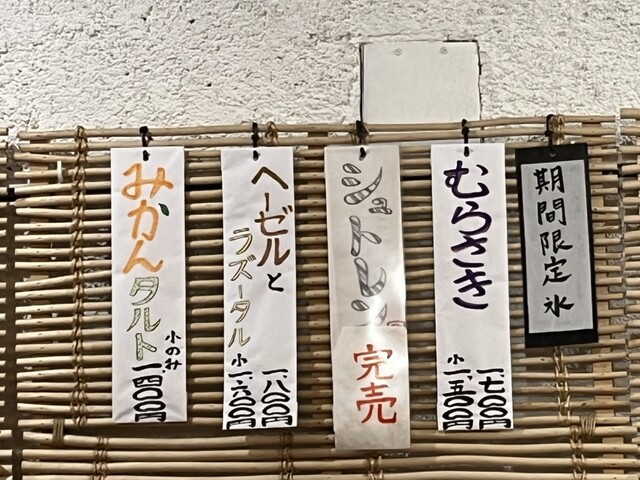 期間限定氷
むらさき
一、七〇〇円
小一、五〇〇円
シュトレン
完売
ヘーゼルと
ラズータル
一、八〇〇円
小一、六〇〇円
みかん
タルト
小のみ
一、四〇〇円